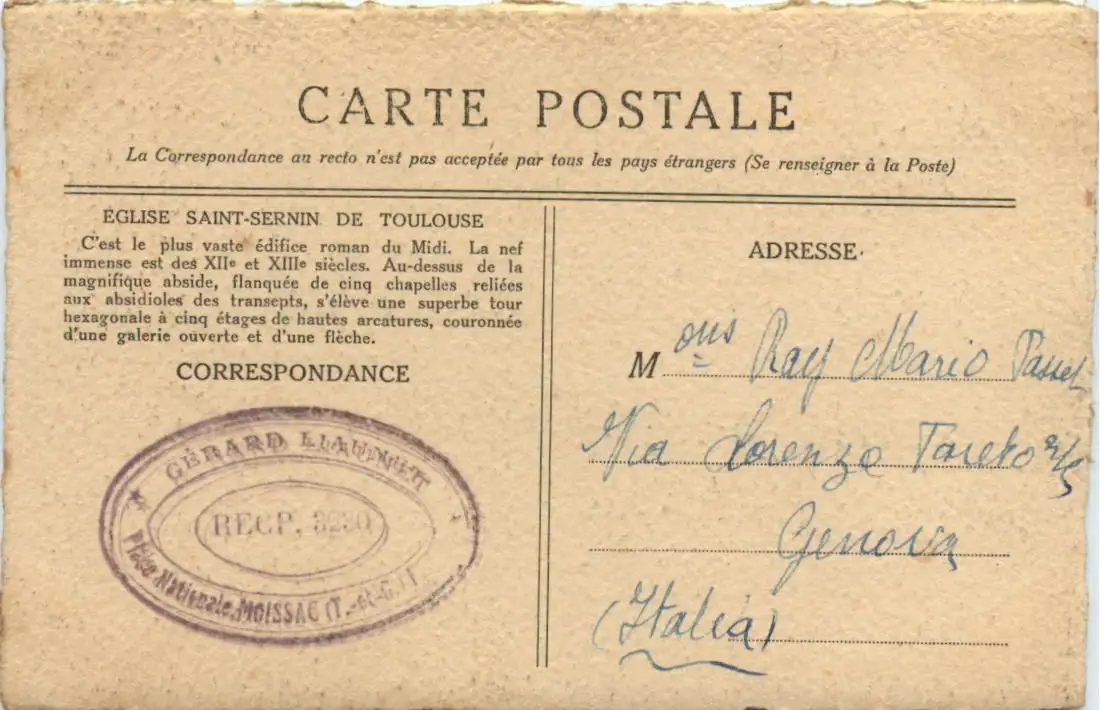 CARTE POSTALE
La Correspondance au recto n'est pas acceptée par tous les pays étrangers (Se renseigner à la Poste)
EGLISE SAINT-SERNIN DE TOULOUSE
C'est le plus vaste édifice roman du Midi. La nef
immense est des XIIe et XIIIe siècles. Au-dessus de la
magnifique abside, flanquée de cinq chapelles reliées
aux absidioles des transepts, s'élève une superbe tour
hexagonale à cinq étages de hautes arcatures, couronnée
d'une galerie ouverte et d'une flèche.
CORRESPONDANCE
GÉRARD
RECP. 3230
Place Nationale, MOISSAC (T.-et-G.)
ADRESSE
Mons Ray Mario
Via Lorenzo Pareto
Genova
(Italia)